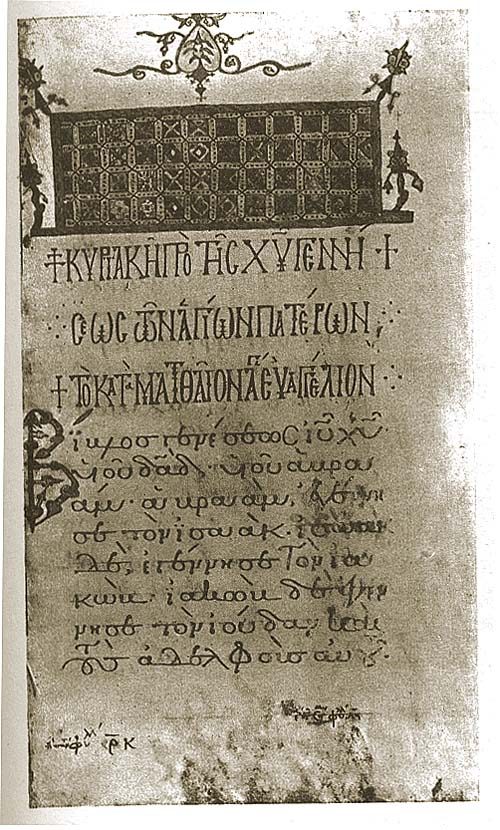 + ΚΥΡΙΑΚΗ ΠΡΟ ΤΗϹ ΧΥ ΓΕΝΝΗ +
ϹΕΩϹ ΤΩΝ ΑΓΙΩΝ ΠΑΤΕΡΩΝ
+ ΤΟ ΚΑΤ ΜΑΤΘΑΙΟΝ ΑΓΙ ΕΥΑΓΓΕΛΙΟΝ
Βίβλοσ γενέσεωσ ιυ χυ
υιου δαδ· υιου αβρα
άμ· αβρααμ
σε τὸν ισαάκ· ισαακ
δὲ, εγέννησε τον ια
κώβ· ιακωβ δε εγεν
νησε τὸν ιούδα· και
τοὺσ αδελφοὺσ αυ